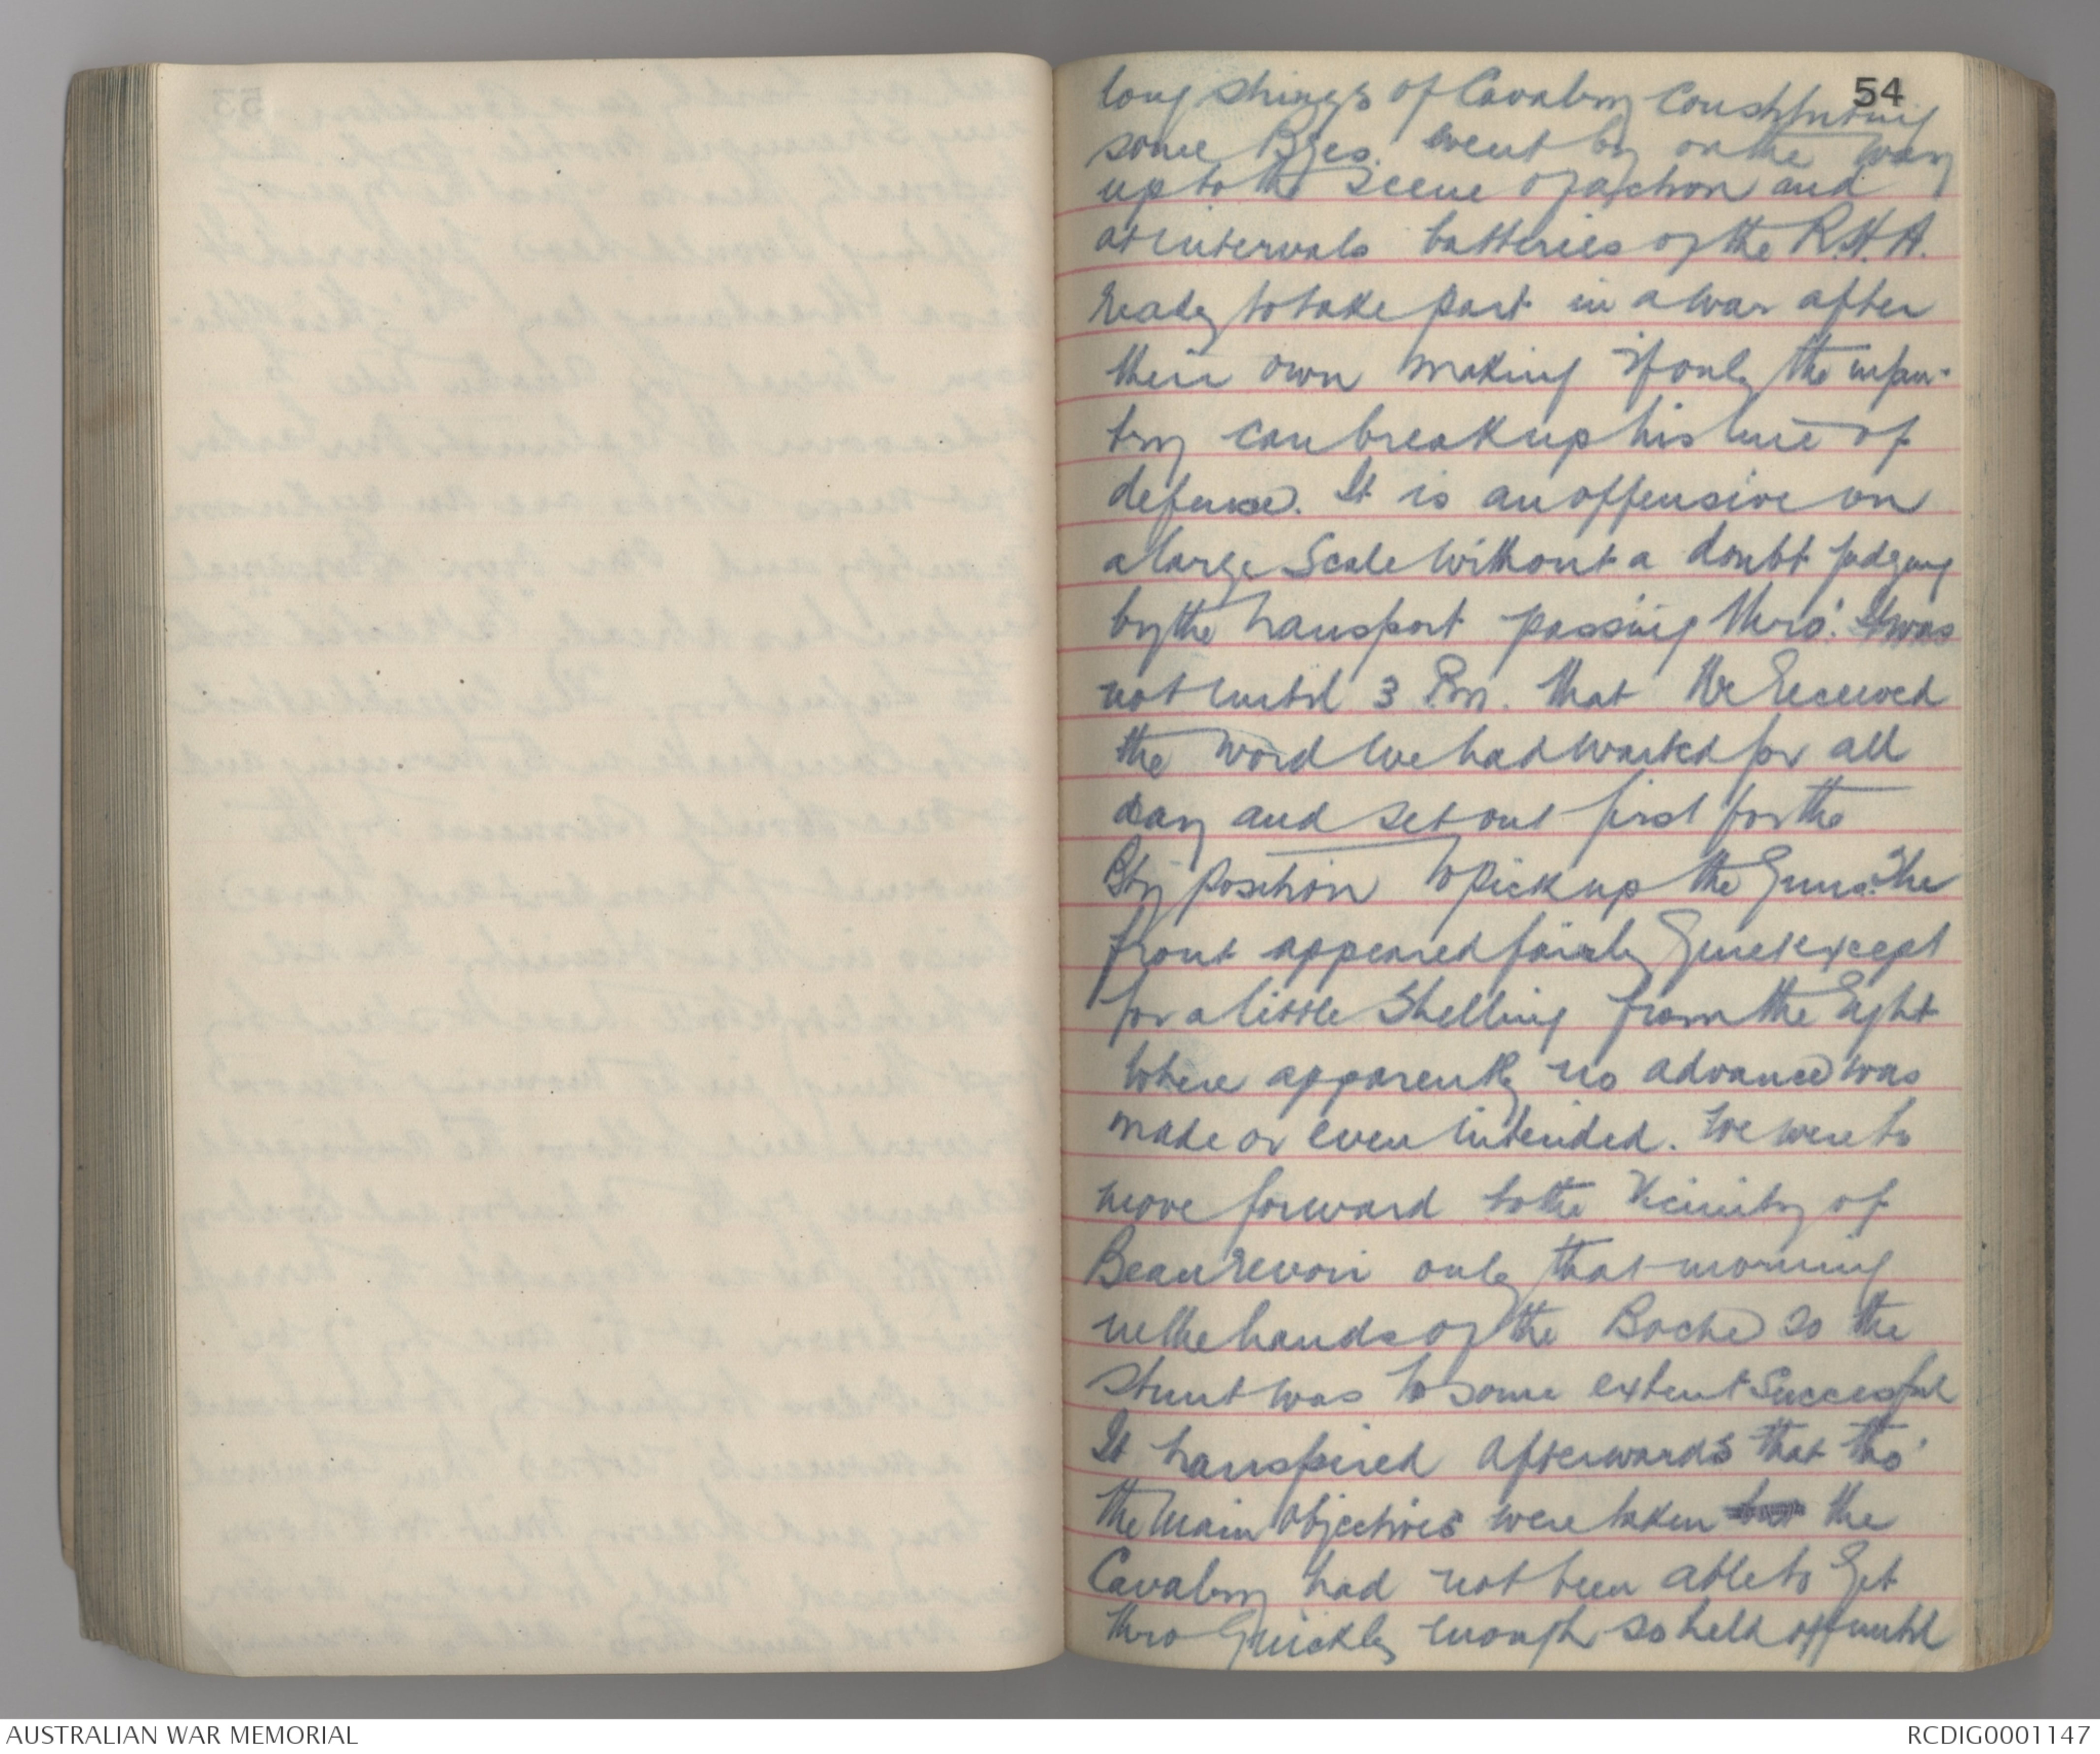 54
long strings of Cavalry Constituting
some Bges. went by on the way
up to the scene of action and
at intervals batteries of the R.H.A.
ready to take part in a war after
their own making if only the infan-
try can break up his line of
defence. It is an offensive on
a large Scale without a doubt judging
by the transport passing thro'. It was
not until 3 P.m. that we received
the word we had waited for all
day and set out first for the
Bty position to pick up the Guns. The
front appeared fairly quiet except
for a little Shelling from the right
where apparently no advance was
made or even intended. We were to
move forward to the Vicinity of
Beaurevoir only that morning
in the hands of the Boche so the
stunt was to some extent Successful
It transpired afterwards that tho'
the main objectives were taken the
Cavalry had not been able to get
thro quickly enough so held off until
AUSTRALIAN WAR MEMORIAL
RCDIG0001147